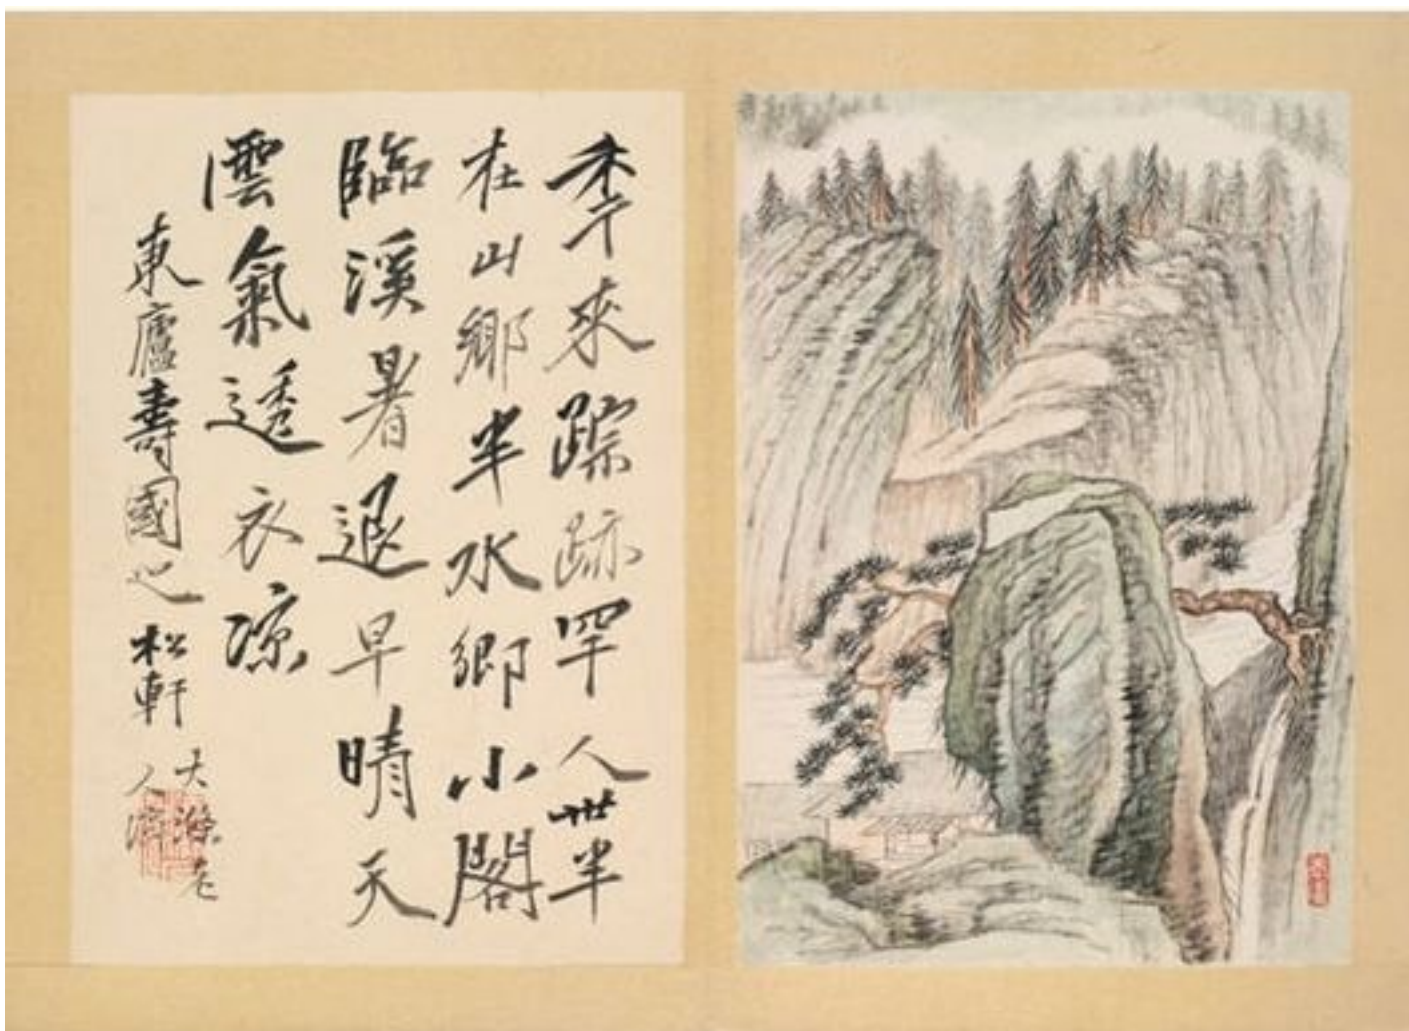 秊來踪跡罕人世半
在山鄉半水鄉小閣
臨溪暑退早晴天
澐氣透衣凉
東廬壽國 松軒
大滌老
人濟